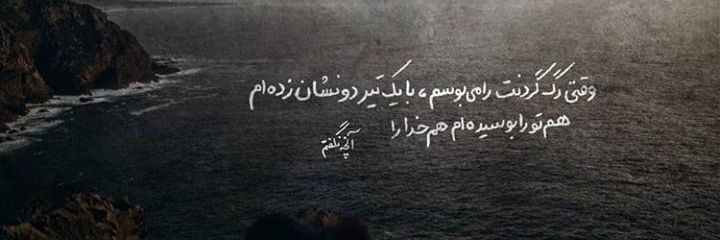 وقتی رگ گردنت را می‌بوسم، با یک تیر دو نشان زده‌ام
هم تو را بوسیده‌ام هم خدا را
آنچه نگفتم